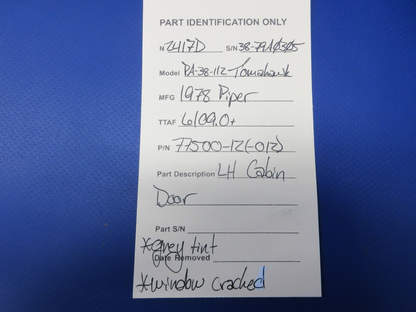 PART IDENTIFICATION ONLY
N 2417D S/N 38-79A0305
Model PA-38-112 Tomahawk
MFG 1978 Piper
TTAF 6109.0+
P/N 77500-12(-012)
Part Description LH Cabin
Door
Part S/N
*grey tint
Date Removed
*window cracked